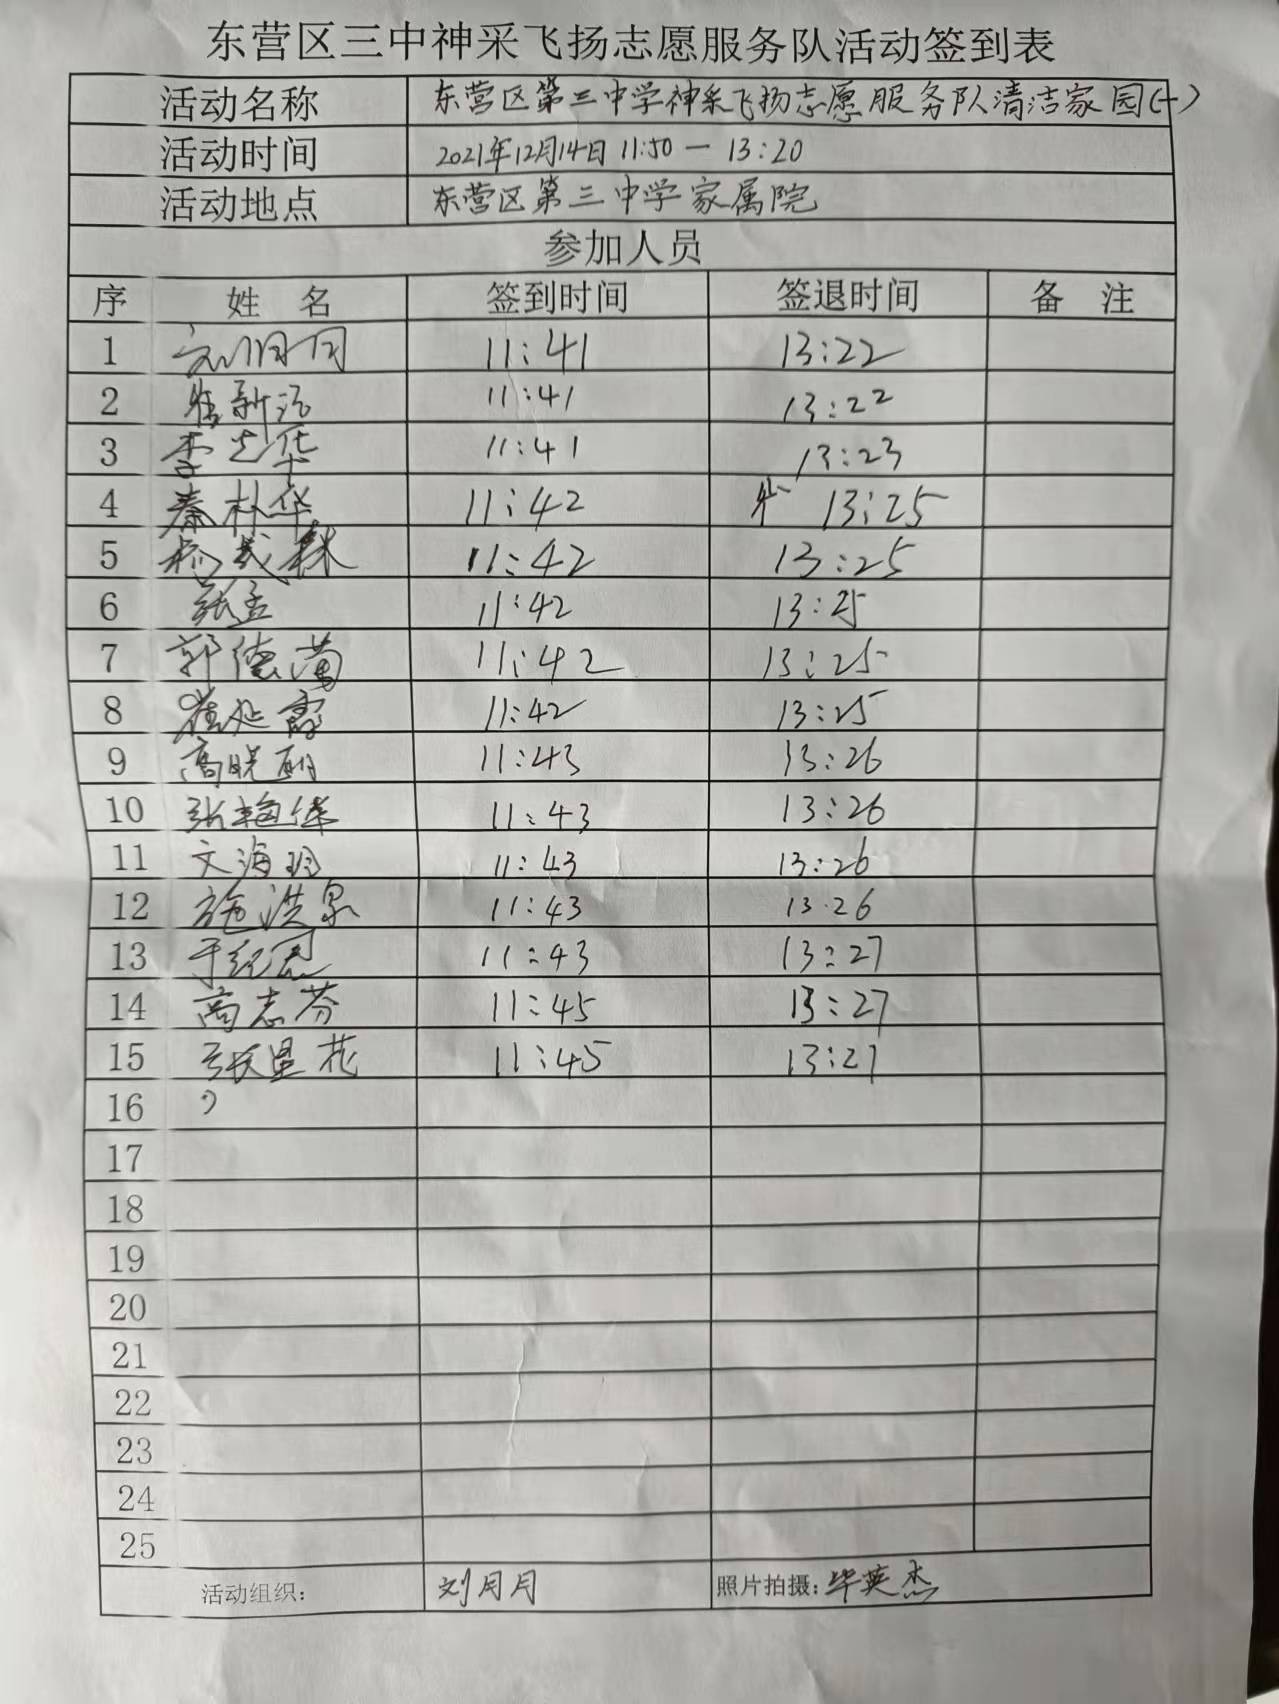 东营区三中神采飞扬志愿服务队活动签到表
活动名称 东营区第三中学神采飞扬志愿服务队清洁家园(一)
活动时间 2021年12月14日 11:50 — 13:20
活动地点 东营区第三中学家属院
参加人员
序 姓 名 签到时间 签退时间 备 注
1 刘月月 11:41 13:22
2 11:41 13:22
3 李光华 11:41 13:23
4 秦朴华 11:42 13:25
5 杨成林 11:42 13:25
6 张孟 11:42 13:25
7 郭德满 11:42 13:25
8 崔延霞 11:42 13:25
9 高晓丽 11:43 13:26
10 张梅华 11:43 13:26
11 文海玲 11:43 13:26
12 施洪泉 11:43 13:26
13 于纪恩 11:43 13:27
14 高志芬 11:45 13:27
15 张星花 11:45 13:27
16
17
18
19
20
21
22
23
24
25
活动组织: 刘月月 照片拍摄: 毕英杰